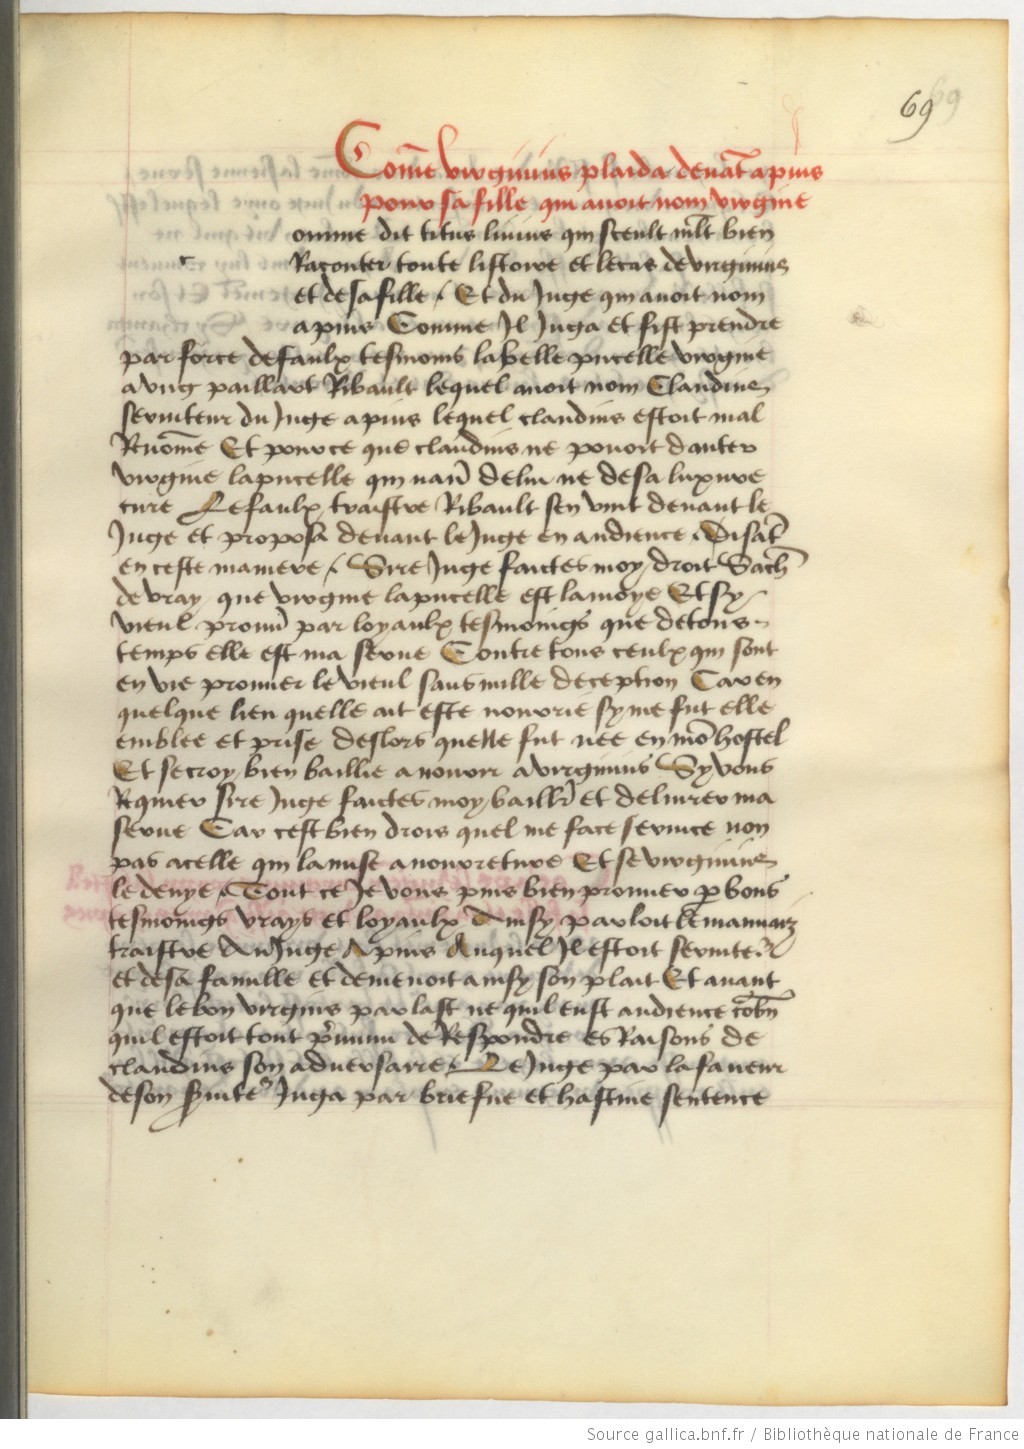 69
Com̄e virginius plaida deuāt apius
pour sa fille qui auoit nom virgine
omme dit titus liuius qui sceult mlt bien
c Raconter toute listoire et le cas de virginius
et de sa fille / Et du Juge qui auoit nom
apius Comme Jl Juga et fist prendre
par force de faulx tesmoins la belle pucelle virgine
a vng paillart Ribault lequel auoit nom Claudius
seruiteur du Juge apius lequel claudius estoit mal
Renōme Et pource que claudius ne pouoit danter
virgine la pucelle qui nauō delui ne de sa luxure
cure Le faulx traistre Ribault sen vint deuant le
Juge et proposa deuant le Juge en audience / Disāt
en ceste maniere / Sire Juge faictes moy droit Sach̄
de vray que virgine la pucelle est la moye Et sy
vieul prouu̅ par loyaulx tesmoings que de tous
temps elle est ma serue Contre tous ceulx qui sont
en vie prouuer le vieul sans nulle deception Car en
quelque lieu quelle ait este nourrie sy me fut elle
emblee et prise deslors quelle fut nee en mō hostel
Et se croy bien baillie a nourir a virginius Sy vous
Requier sire Juge faictes moy baillr̄ et deliurer ma
serue Car cest bien drois quel me face seruice non
pas a celle qui la mise a nourreture Et se virginius
le denye / Tout ce Je vous puis bien prouuer p̱ bons
tesmoings vrays et loyaulx Ainsy parloit le mauuaiz
traistre Au Juge Apius Auquel Jl estoit seruiteʳ
et de sa famille et demenoit ainsy son plait Et auant
que le bon virginis parlast ne quil eust audience cōbn̄
quil estoit tout p̄muni de Respondre es Raisons de
claudius son aduersarre / Le Juge par la faueur
de son s̄uiteʳ Juga par briefue et hastiue sentence
Source gallica.bnf.fr / Bibliothèque nationale de France